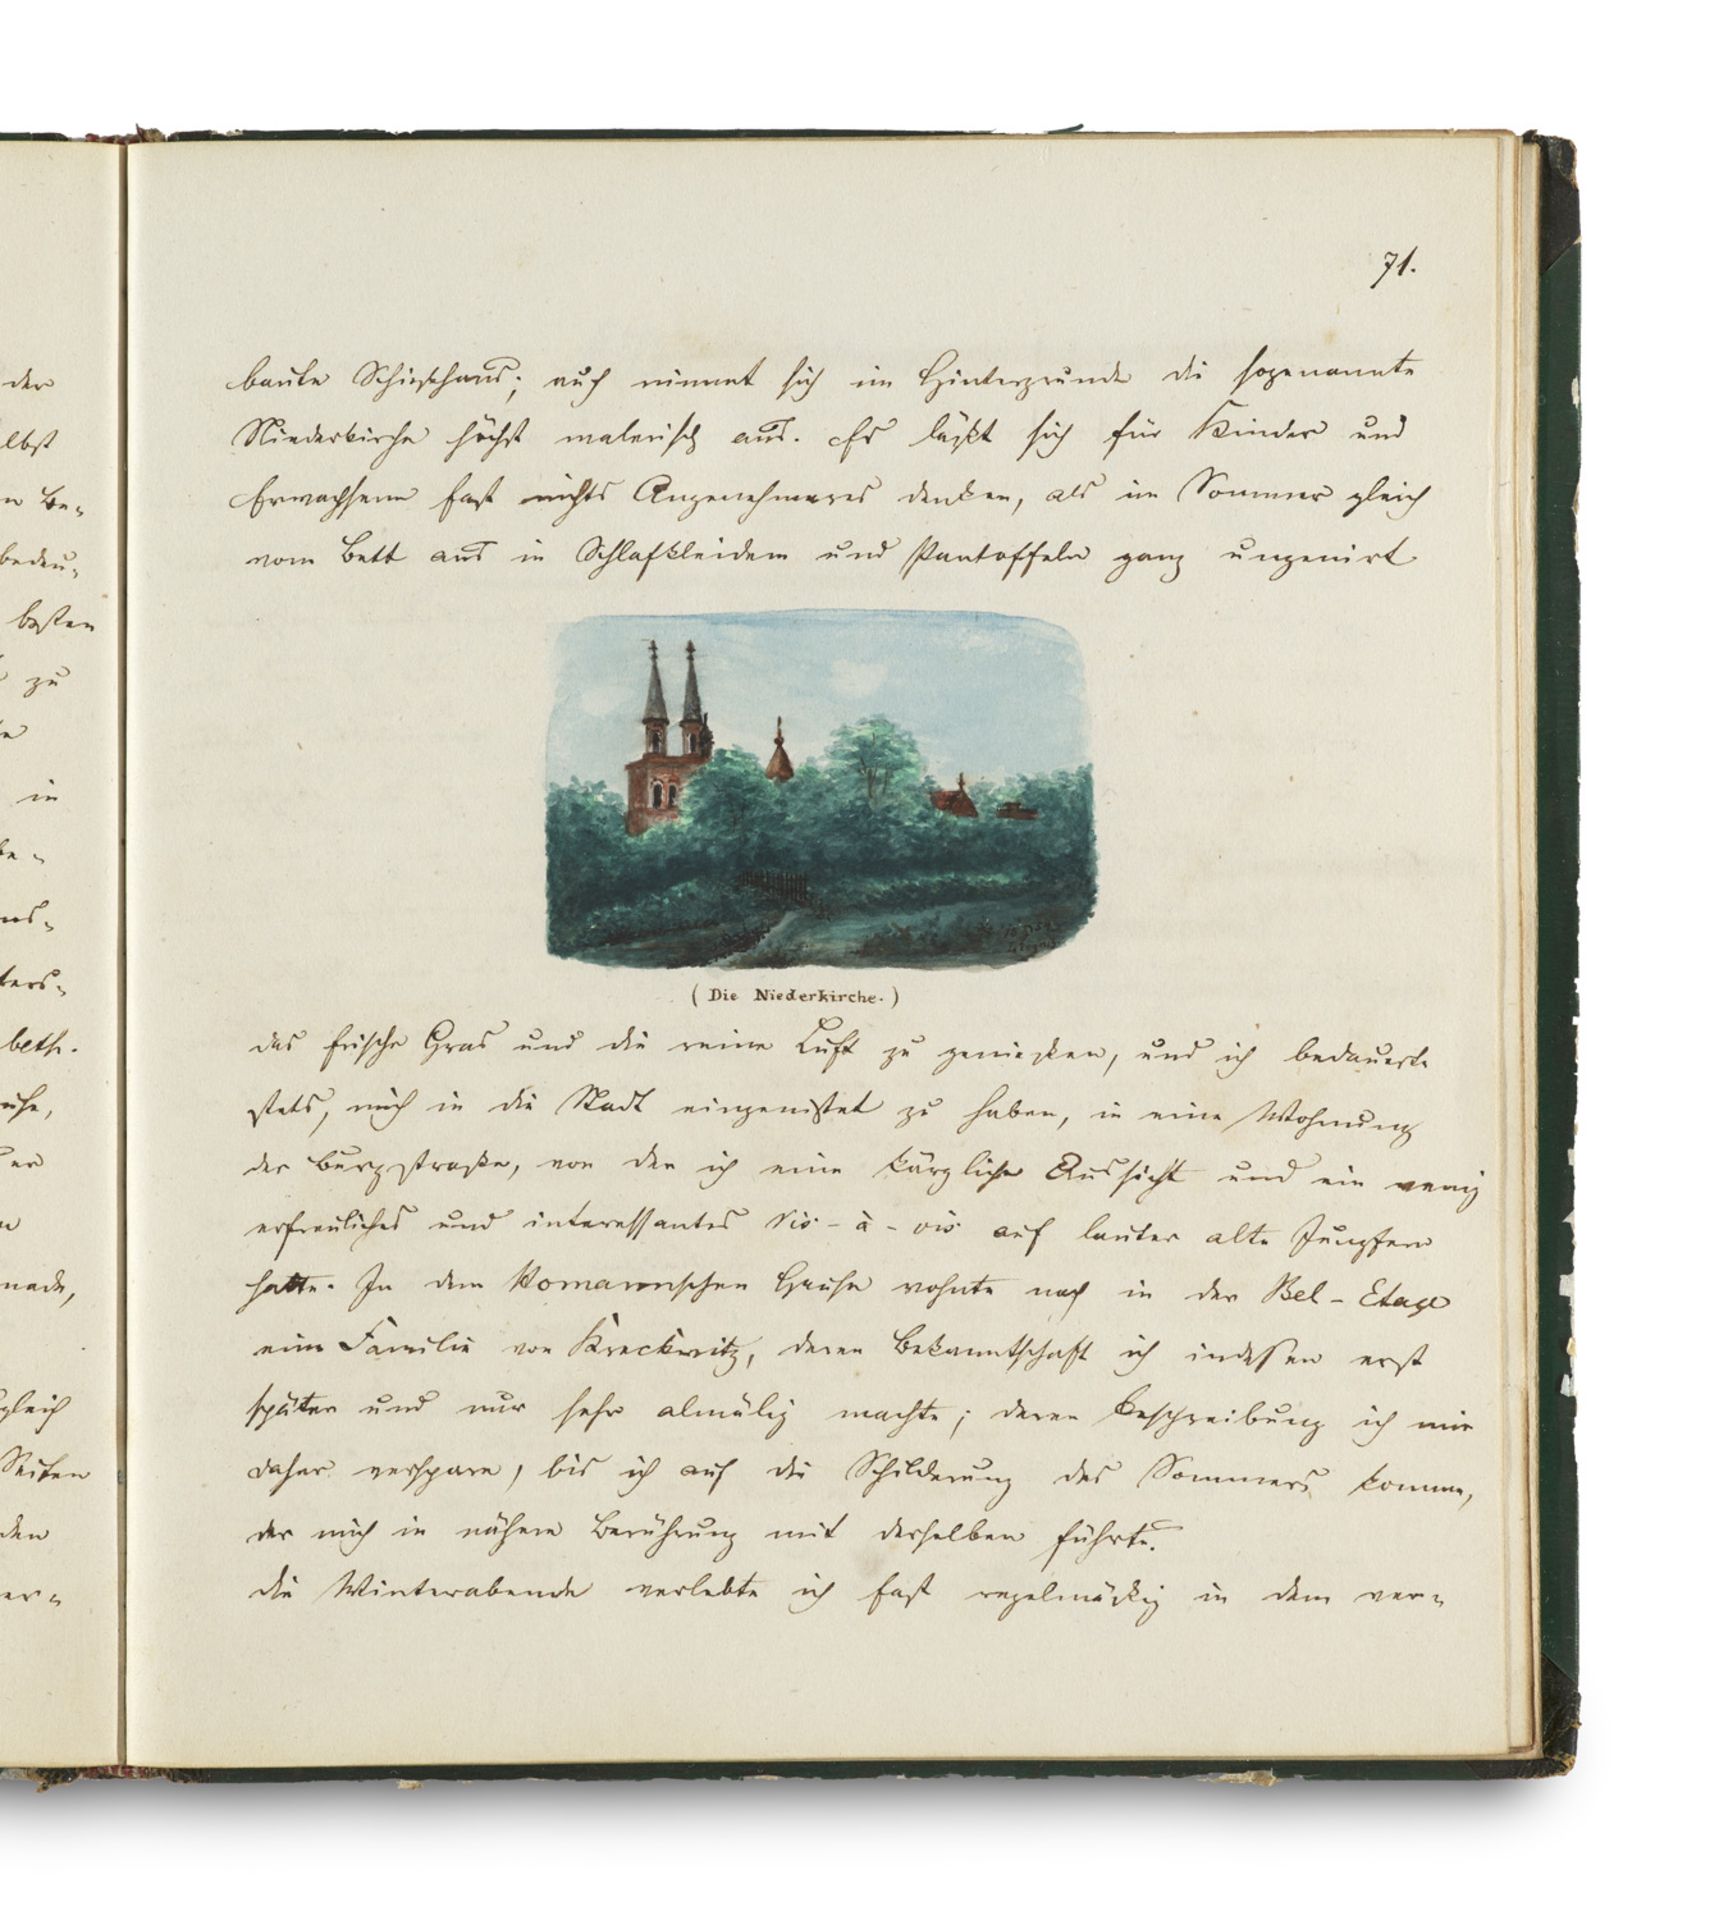 71.
baute Schießhaus; auch nimmt sich im Hintergrunde die sogenannte
Niederkirche höchst malerisch aus. Es läßt sich für Kinder und
Erwachsene fast nichts Angenehmeres denken, als im Sommer gleich
vom Bett aus in Schlafkleidern und Pantoffeln ganz ungenirt
(Die Niederkirche.)
das frische Gras und die reine Luft zu genießen, und ich bedauerte
stets, mich in die Stadt eingenistet zu haben, in eine Wohnung
der Burgstraße, von der ich eine kärgliche Aussicht und ein wenig
erfreuliches und interessantes vis-à-vis auf lauter alte Jungfern
hatte. In dem Homannschen Hause wohnte noch in der Bel-Etage
eine Familie von Kreckwitz, deren Bekanntschaft ich indessen erst
später und nur sehr almälig machte; deren Beschreibung ich mir
daher verspare, bis ich auf die Schilderung des Sommers komme,
der mich in nähere Berührung mit derselben führte.
Die Winterabende verlebte ich fast regelmäßig in dem ver-
der
elbst
n Be-
bedeu-
besten
zu
in
be-
ters-
beth.
nade,
gleich
Seiten
den
er-